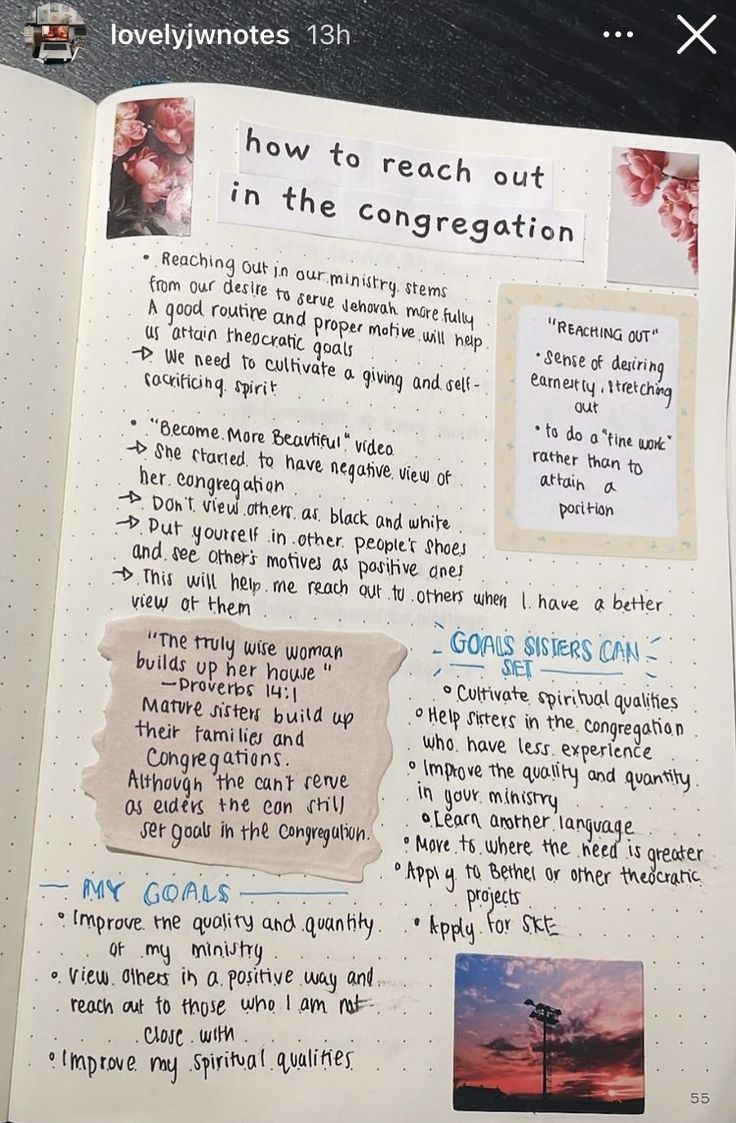 lovelyjwnotes 13h
how to reach out
in the congregation
• Reaching out in our ministry stems
from our desire to serve Jehovah more fully
A good routine and proper motive will help
us attain theocratic goals
→ We need to cultivate a giving and self-
sacrificing spirit
"REACHING OUT"
• sense of desiring
earnestly, stretching
out
• to do a "fine work"
rather than to
attain a
position
• "Become More Beautiful" video
→ She started to have negative view of
her congregation
→ Don't view others as black and white
→ Put yourself in other people's shoes
and see other's motives as positive ones
→ This will help me reach out to others when I have a better
view of them
"The truly wise woman
builds up her house"
—Proverbs 14:1
Mature sisters build up
their families and
Congregations.
Although the can't serve
as elders the can still
set goals in the congregation.
GOALS SISTERS CAN
SET
• Cultivate spiritual qualities
• Help sisters in the congregation
who have less experience
• Improve the quality and quantity
in your ministry
• Learn another language
• Move to where the need is greater
• Apply to Bethel or other theocratic
projects
• Apply for SKE
MY GOALS
• Improve the quality and quantity
of my ministry
• View others in a positive way and
reach out to those who I am not
close with
• Improve my spiritual qualities
55